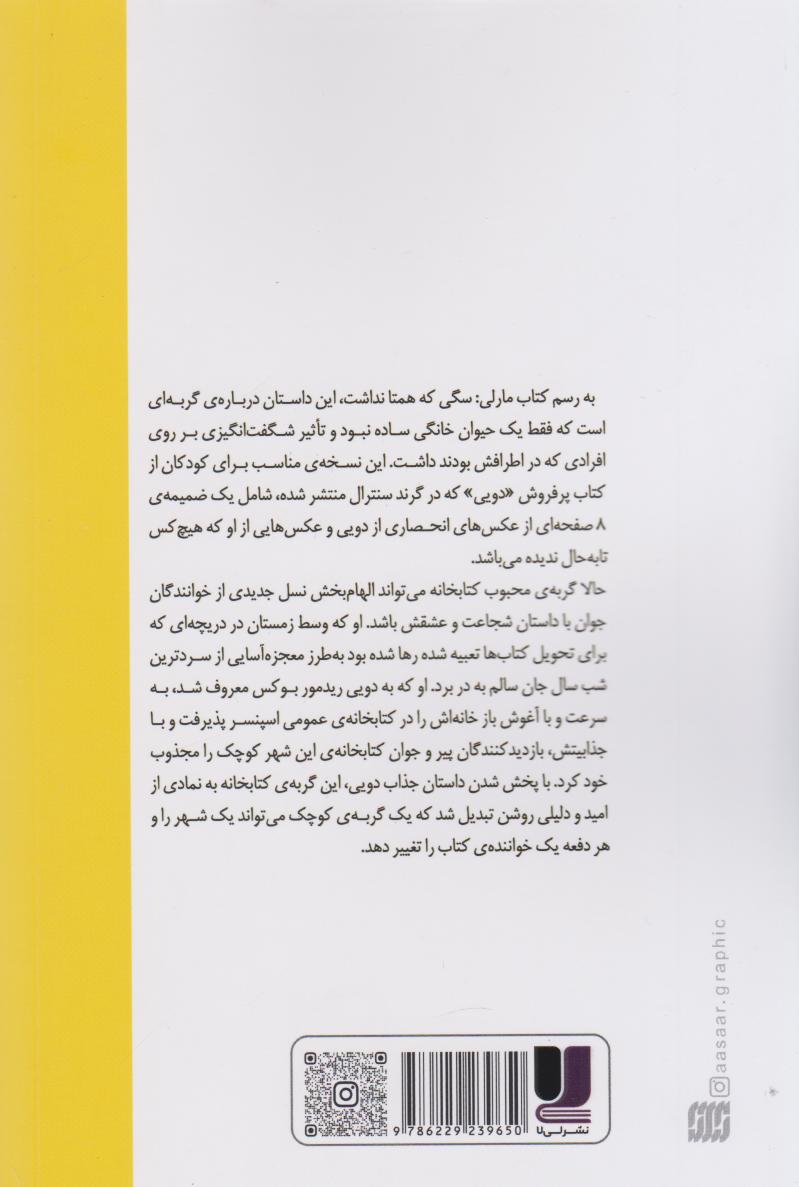 به رسم کتاب مارلی: سگی که همتا نداشت، این داستان درباره‌ی گربه‌ای
است که فقط یک حیوان خانگی ساده نبود و تأثیر شگفت‌انگیزی بر روی
افرادی که در اطرافش بودند داشت. این نسخه‌ی مناسب برای کودکان از
کتاب پرفروش «دویی» که در گرند سنترال منتشر شده، شامل یک ضمیمه‌ی
۸ صفحه‌ای از عکس‌های انحصاری از دویی و عکس‌هایی از او که هیچ‌کس
تابه‌حال ندیده می‌باشد.
حالا گربه‌ی محبوب کتابخانه می‌تواند الهام‌بخش نسل جدیدی از خوانندگان
جوان با داستان شجاعت و عشقش باشد. او که وسط زمستان در دریچه‌ای که
برای تحویل کتاب‌ها تعبیه شده رها شده بود به‌طرز معجزه‌آسایی از سردترین
شب سال جان سالم به در برد. او که به دویی ریدمور بوکس معروف شد، به
سرعت و با آغوش باز خانه‌اش را در کتابخانه‌ی عمومی اسپنسر پذیرفت و با
جذابیتش، بازدیدکنندگان پیر و جوان کتابخانه‌ی این شهر کوچک را مجذوب
خود کرد. با پخش شدن داستان جذاب دویی، این گربه‌ی کتابخانه به نمادی از
امید و دلیلی روشن تبدیل شد که یک گربه‌ی کوچک می‌تواند یک شهر را و
هر دفعه یک خواننده‌ی کتاب را تغییر دهد.
aasaar.graphic
نشر لی‌لا
9 786229 239650